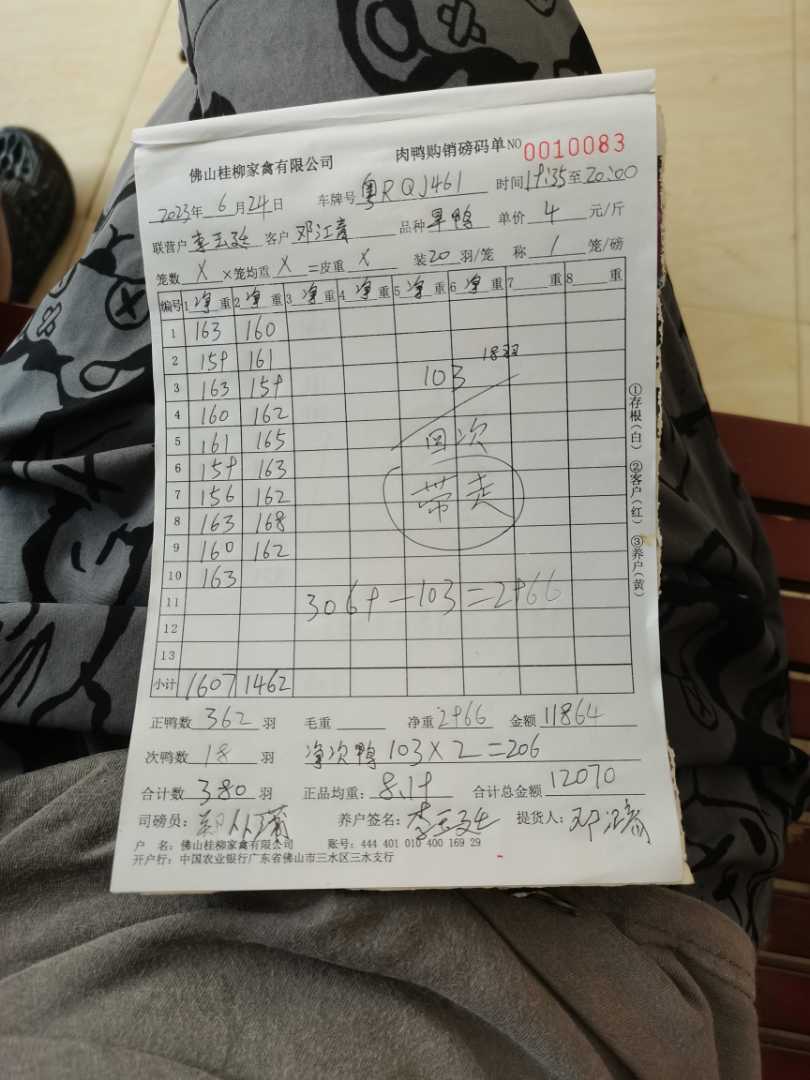 佛山桂柳家禽有限公司 肉鸭购销磅码单 NO 0010083
2023年 6 月 24 日 车牌号 粤RQJ461 时间 19:35 至 20:00
联营户 李玉延 客户 邓江 品种 旱鸭 单价 4 元/斤
笼数 X ×笼均重 X =皮重 X 装 20 羽/笼 称 1 笼/磅
编号 1 净 重 2 净 重 3 净 重 4 净 重 5 净 重 6 净 重 7 重 8 重
1 163 160
2 159 161 18羽
3 163 159 103
4 160 162
5 161 165 回次
6 159 163
7 156 162 带走
8 163 168
9 160 162
10 163
11 3069-103=2966
12
13
小计 1607 1462
正鸭数 362 羽 毛重 净重 2966 金额 11864
次鸭数 18 羽 净次鸭 103×2=206
合计数 380 羽 正品均重: 8.19 合计总金额 12070
司磅员: 养户签名: 李玉延 提货人: 邓江
户 名: 佛山桂柳家禽有限公司 账号: 444 401 010 400 169 29
开户行: 中国农业银行广东省佛山市三水区三水支行
①存根(白) ②客户(红) ③养户(黄)